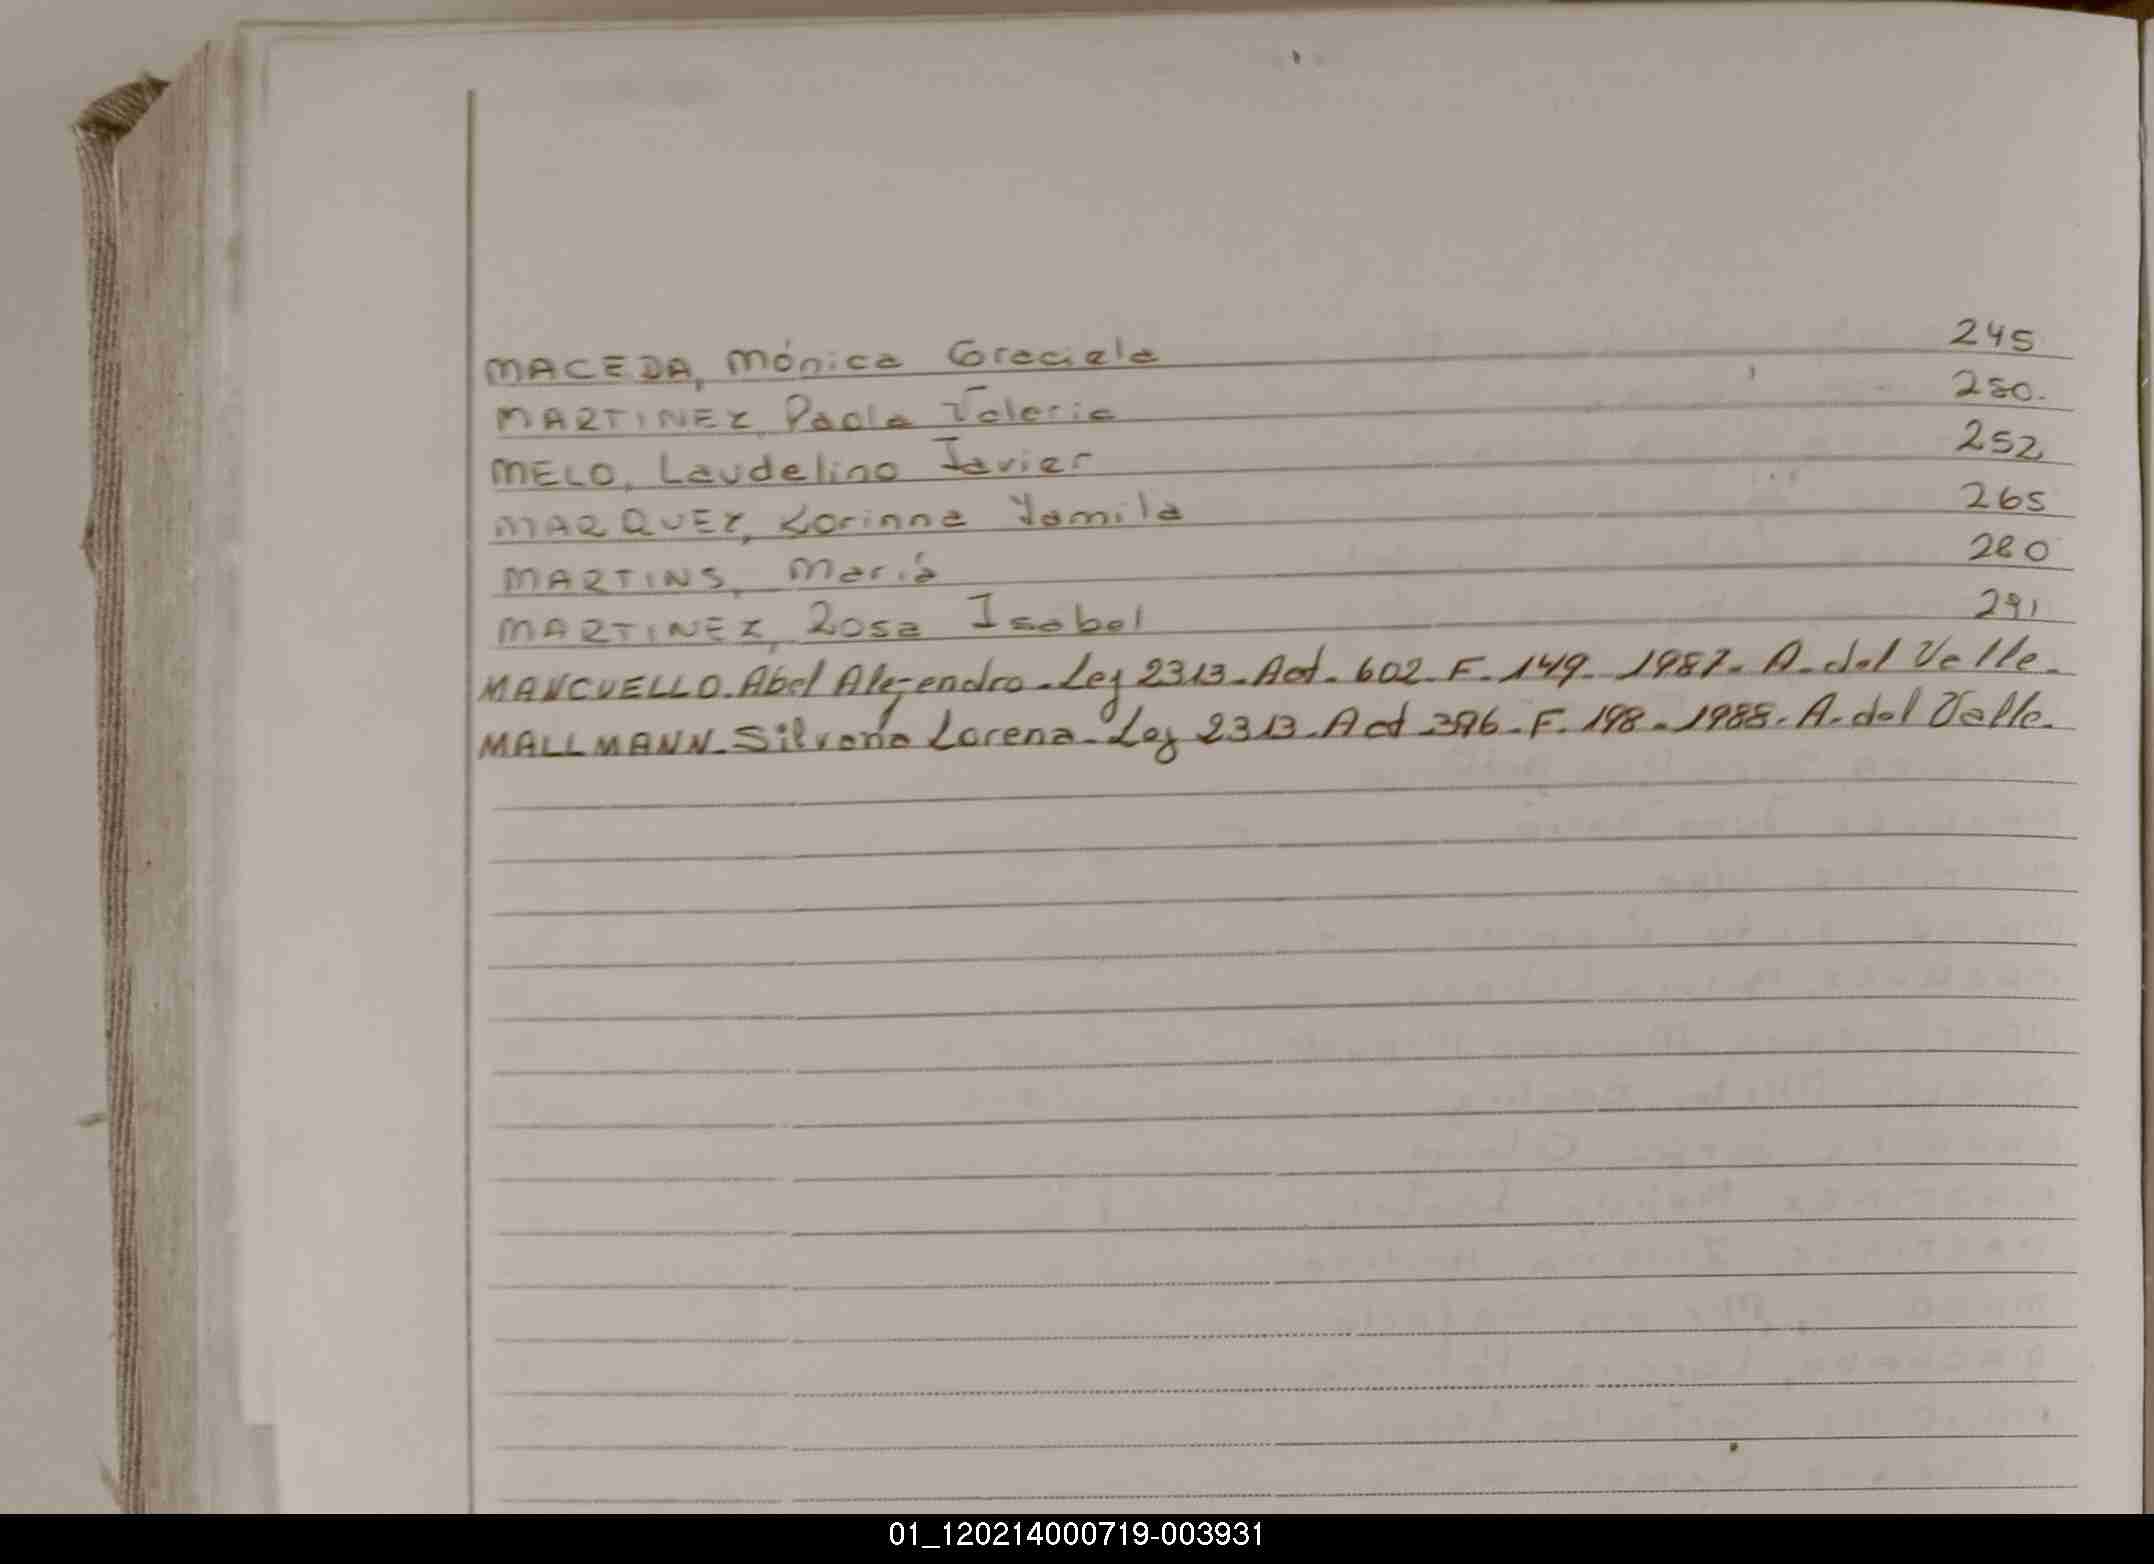 MACEDA, Mónica Graciela 245
MARTINEZ, Paola Valeria 250.
MELO, Laudelino Javier 252
MARQUEZ, Korinna Yamila 265
MARTINS, María 280
MARTINEZ, Rosa Isabel 291
MANCUELLO. Abel Alejandro - Ley 2313 - Act. 602 - F. 149 - 1987 - A. del Valle -
MALLMANN - Silvana Lorena - Ley 2313 - Act 396 - F. 198 - 1988 - A. del Valle -
01_120214000719-003931